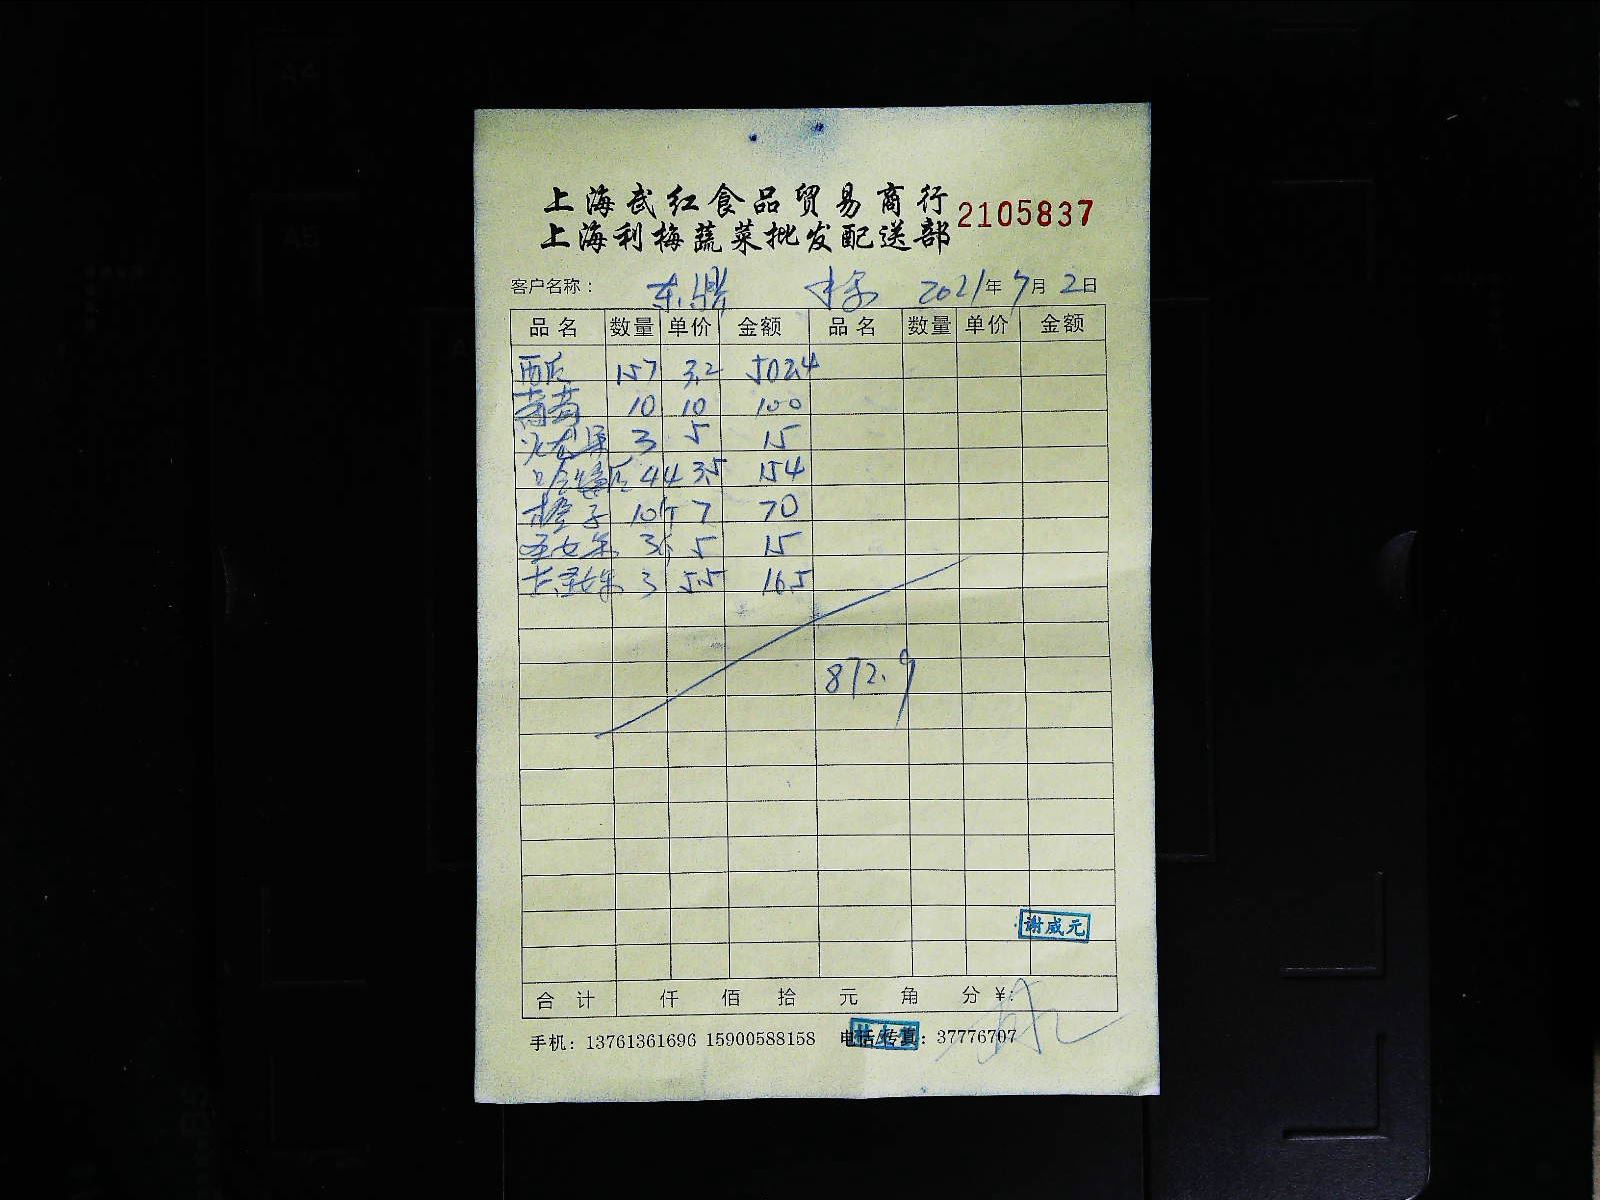 上海武红食品贸易商行
上海利梅蔬菜批发配送部 2105837
客户名称： 东鼎 2021年7月2日
品名 数量 单价 金额 品名 数量 单价 金额
西瓜 157 3.2 502.4
香莒 10 10 100
火龙果 3 5 15
哈蜜瓜 44 3.5 154
橙子 10 7 70
圣女果 3 5 15
圣女果 3 5.5 16.5
872.9
谢威元
合计 仟 佰 拾 元 角 分 ¥:
手机：13761361696 15900588158 电话/传真：37776707